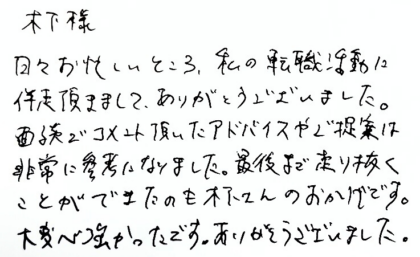 木下様
日々お忙しいところ、私の転職活動に
伴走頂きまして、ありがとうございました。
面談でコメント頂いたアドバイスやご提案は
非常に参考になりました。最後まで走り抜く
ことができたのも木下さんのおかげです。
大変心強かったです。ありがとうございました。